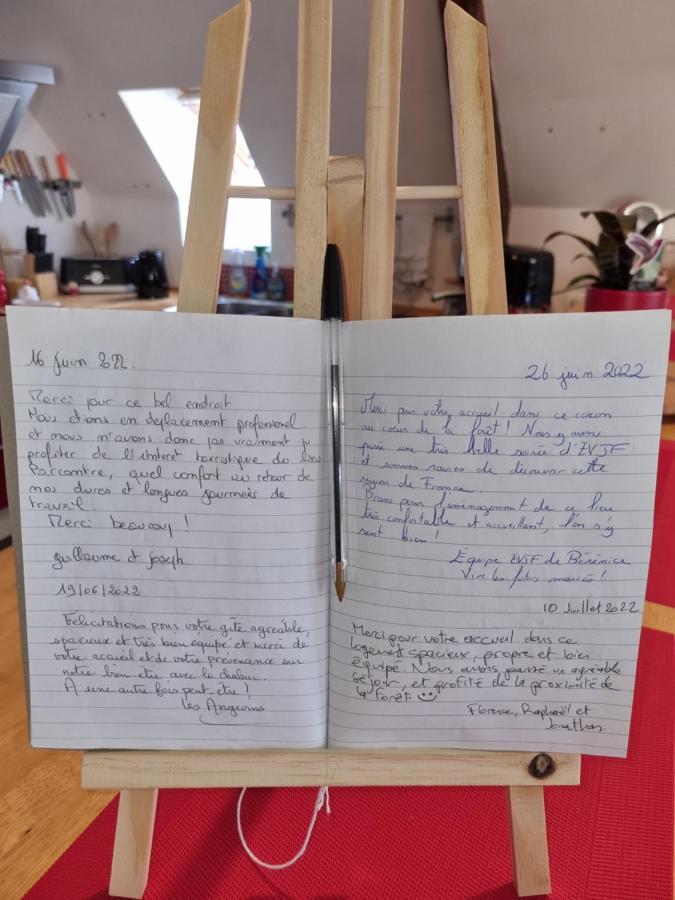 16 juin 2022.
Merci pour ce bel endroit
Nous étions en déplacement professionnel
et nous n'avons donc pas vraiment pu
profiter de l'intérêt touristique du lieu
Par contre, quel confort au retour de
nos dures et longues journées de
travail.
Merci beaucoup !
guillaume et joseph
19/06/2022
Félicitations pour votre gîte agréable,
spacieux et très bien équipé et merci de
votre accueil et de votre prévenance sur
notre bien être avec la chaleur.
A une autre fois peut être !
Les Angevins
26 juin 2022
Merci pour votre accueil dans ce cocon
au cœur de la forêt ! Nous y avons
passé une très belle soirée d'EVJF
et sommes ravies de découvrir cette
région de France.
Bravo pour l'aménagement de ce lieu
très confortable et accueillant, l'on s'y
sent bien !
Équipe EVJF de Bérénice
Vive les futurs mariés !
10 Juillet 2022
Merci pour votre accueil dans ce
logement spacieux, propre et bien
équipé. Nous avons passé un agréable
séjour, et profité de la proximité de
la forêt. ☺
Florence, Raphaël et
Jonathan.